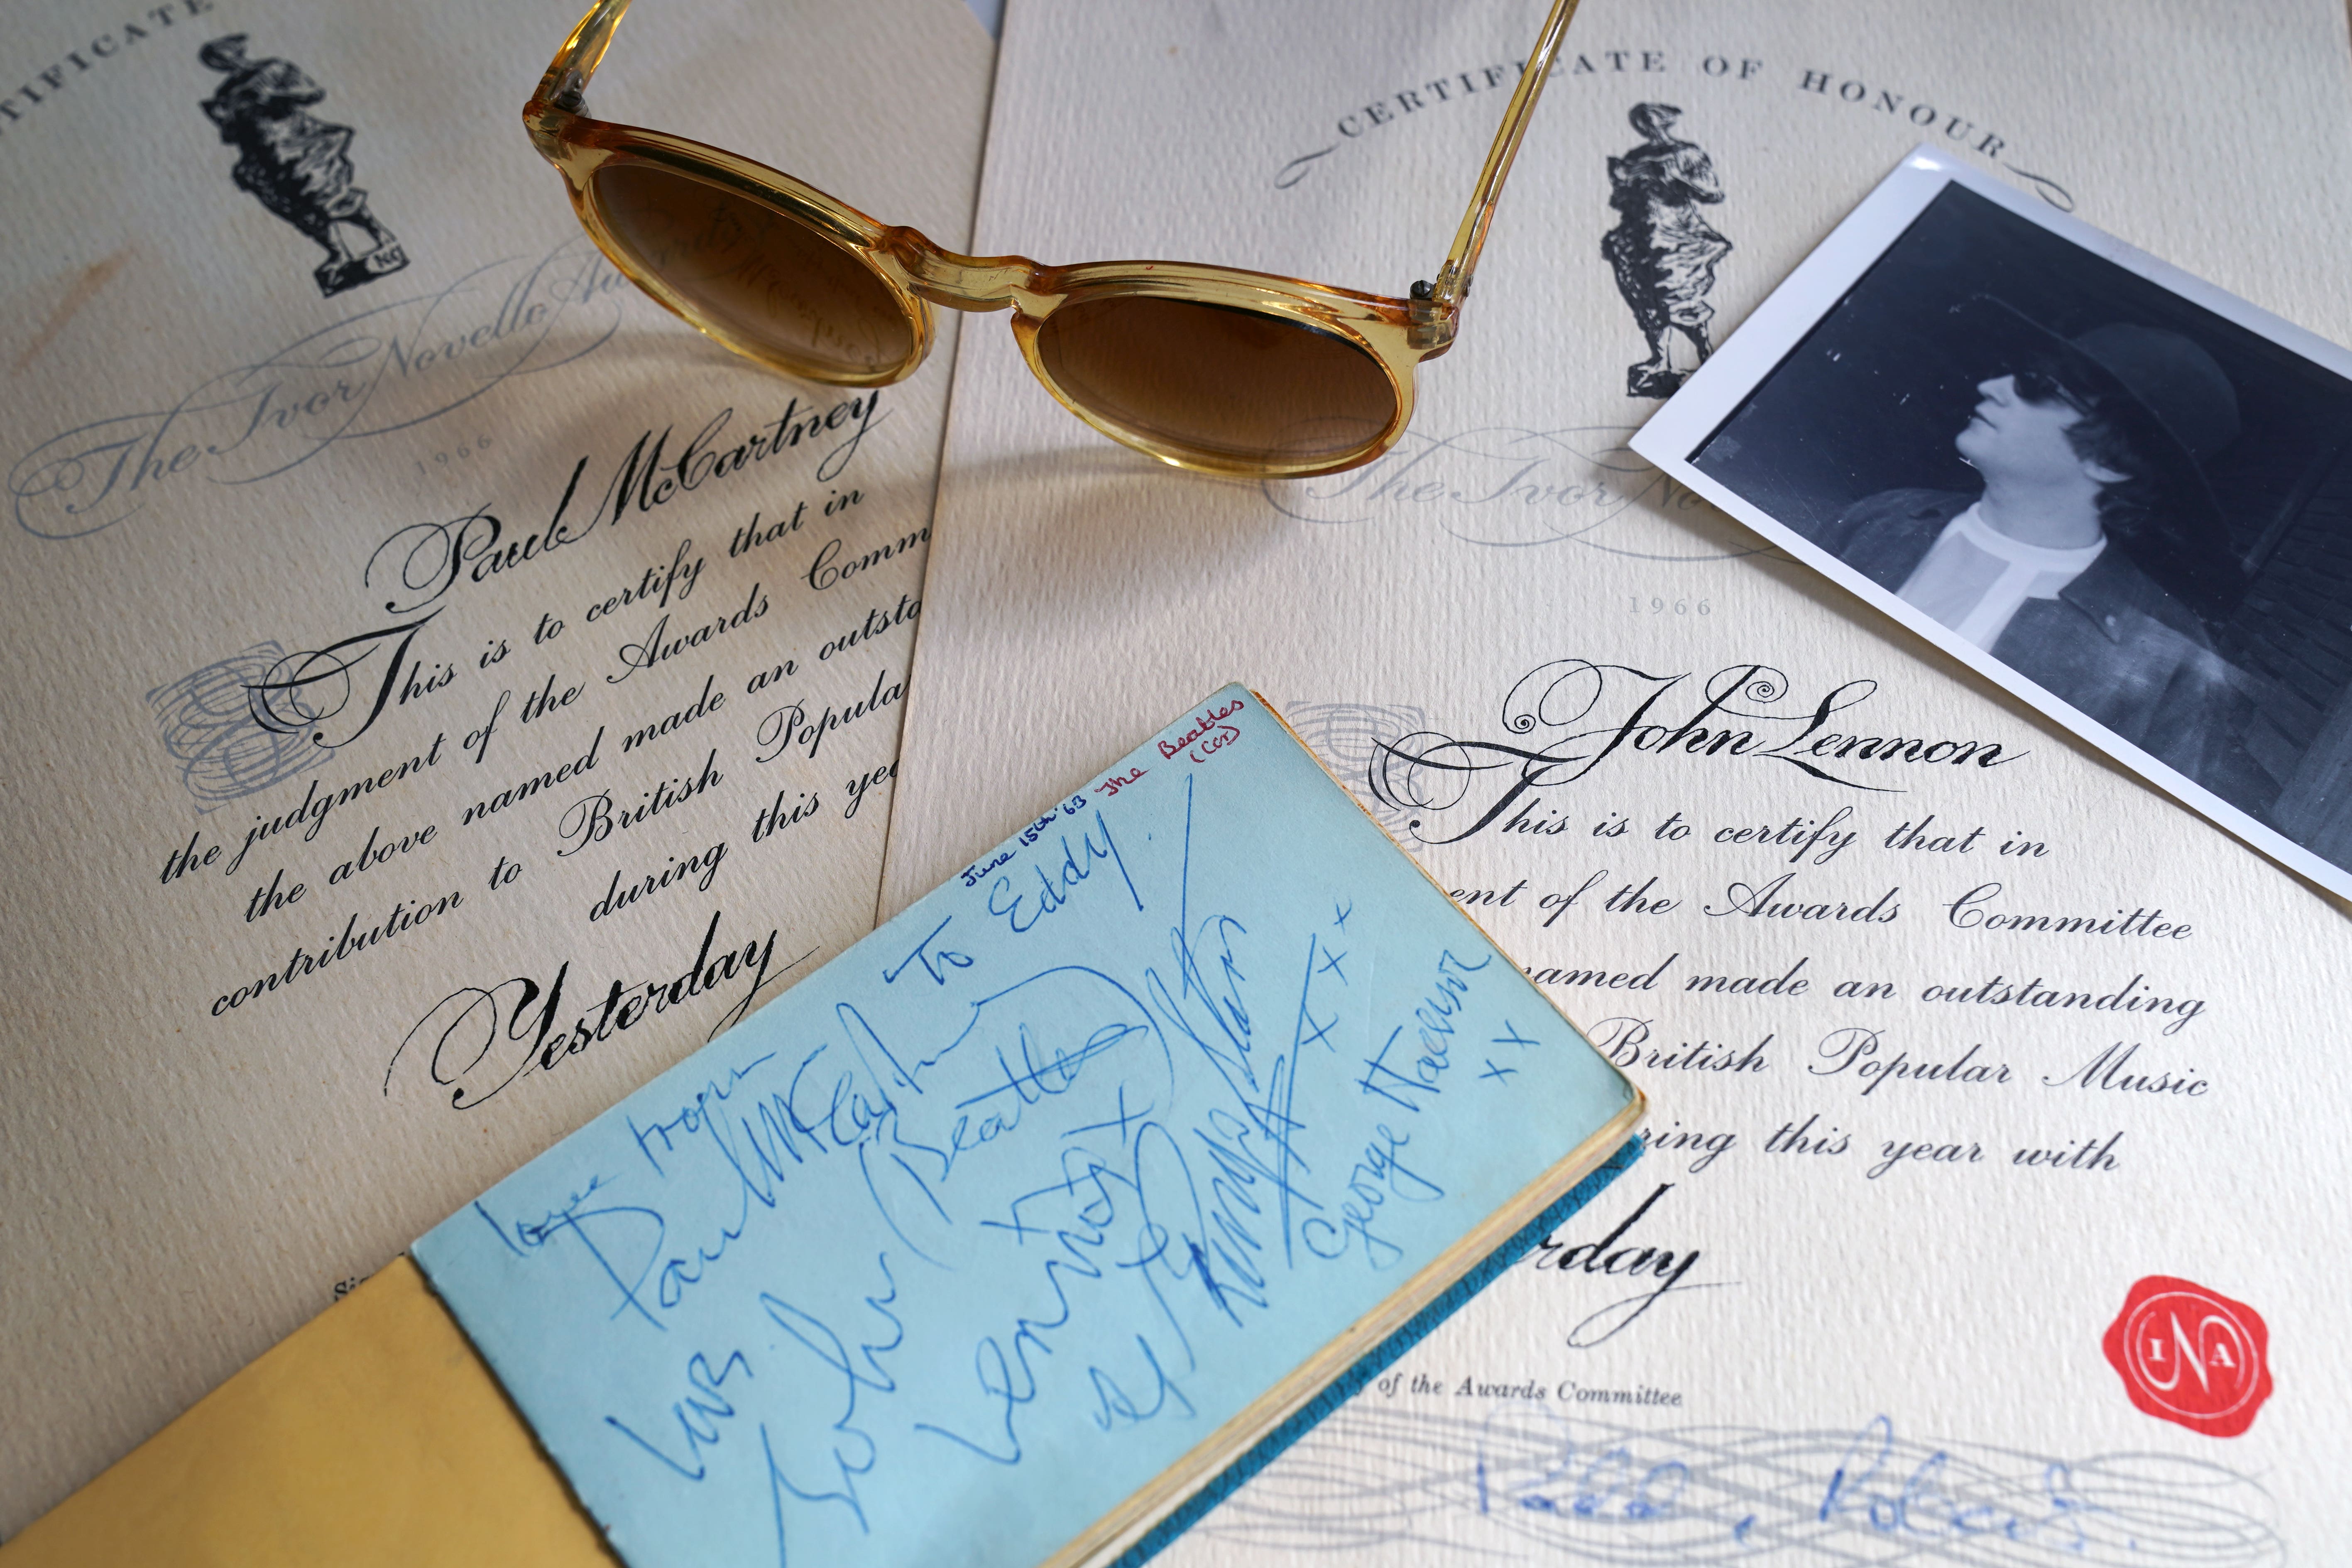 TIFICATE
NO
The Ivor Novello Aw
1966
Paul McCartney
This is to certify that in
the judgment of the Awards Comm
the above named made an outsta
contribution to British Popula
during this yea
Yesterday
CERTIFICATE OF HONOUR
The Ivor No
1966
John Lennon
This is to certify that in
ent of the Awards Committee
named made an outstanding
British Popular Music
ring this year with
rday
of the Awards Committee
INA
June 15th '63 The Beatles
To Eddy.
love from
Paul McCartney
(Beatles)
love
John
Lennon
xxx
Ringo Starr
xxx
George Harrison
xx